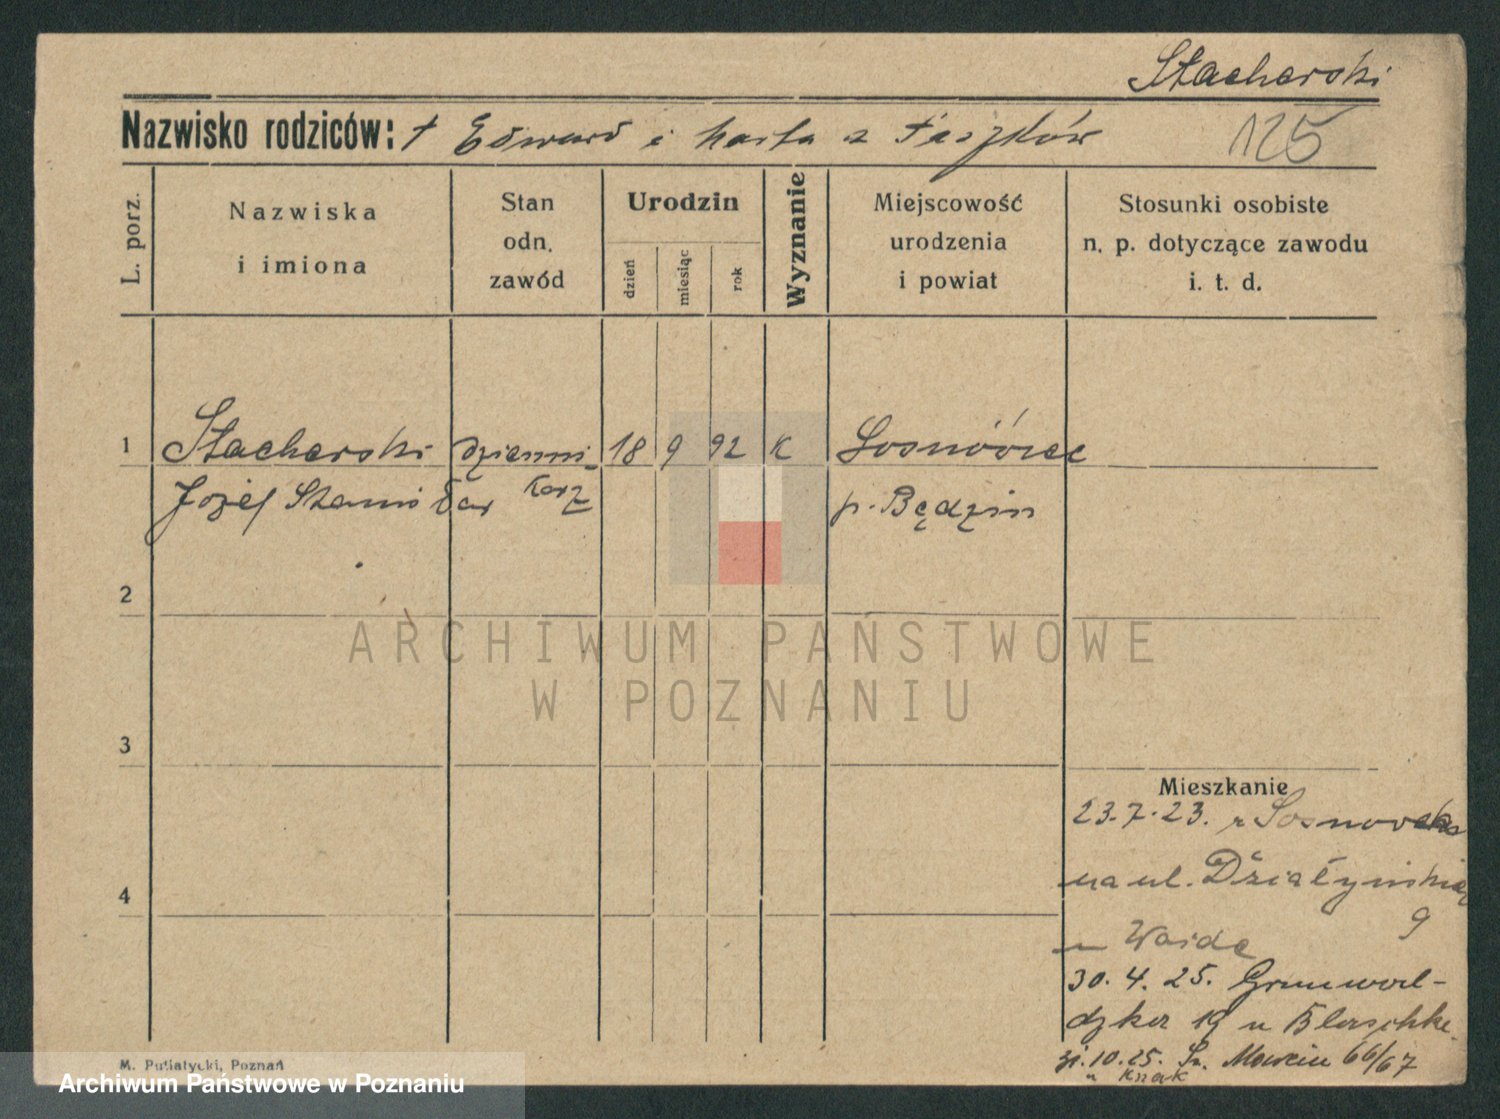 Stacherski
Nazwisko rodziców: † Edward i Marta z Paszków
125
L. porz.
Nazwiska
i imiona
Stan
odn.
zawód
Urodzin
dzień
miesiąc
rok
Wyznanie
Miejscowość
urodzenia
i powiat
Stosunki osobiste
n. p. dotyczące zawodu
i. t. d.
1 Stacherski dzienni- 18 9 92 K Sosnówiec
Józef Stanisław karz p. Będzin
2
ARCHIWUM PAŃSTWOWE
W POZNANIU
3
Mieszkanie
23.7.23. z Sosnowca
na ul. Działyńskią
9
u Waide
4
30. 4. 25. Grunwal-
dzka 19 u Blaschke
31.10.25. Św. Marcin 66/67
u Knak
M. Putiatycki, Poznań
Archiwum Państwowe w Poznaniu